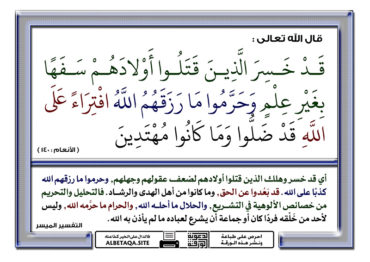 قال الله تعالى :
قَدْ خَسِرَ الَّذِينَ قَتَلُوا أَوْلَادَهُمْ سَفَهًا
بِغَيْرِ عِلْمٍ وَحَرَّمُوا مَا رَزَقَهُمُ اللَّهُ افْتِرَاءً عَلَى
اللَّهِ قَدْ ضَلُّوا وَمَا كَانُوا مُهْتَدِينَ
( الأنعام : ١٤٠ )
أي قد خسر وهلك الذين قتلوا أولادهم لضعف عقولهم وجهلهم، وحرموا ما رزقهم الله
كذبًا على الله. قد بَعُدوا عن الحق، وما كانوا من أهل الهدى والرشاد. فالتحليل والتحريم
من خصائص الألوهية في التشريع، والحلال ما أحله الله، والحرام ما حرَّمه الله، وليس
لأحد من خَلْقه فردًا كان أو جماعة أن يشرع لعباده ما لم يأذن به الله.
التفسير الميسر
احرص على طباعة
ونشر هذه الورقة
ALBETAQA.SITE